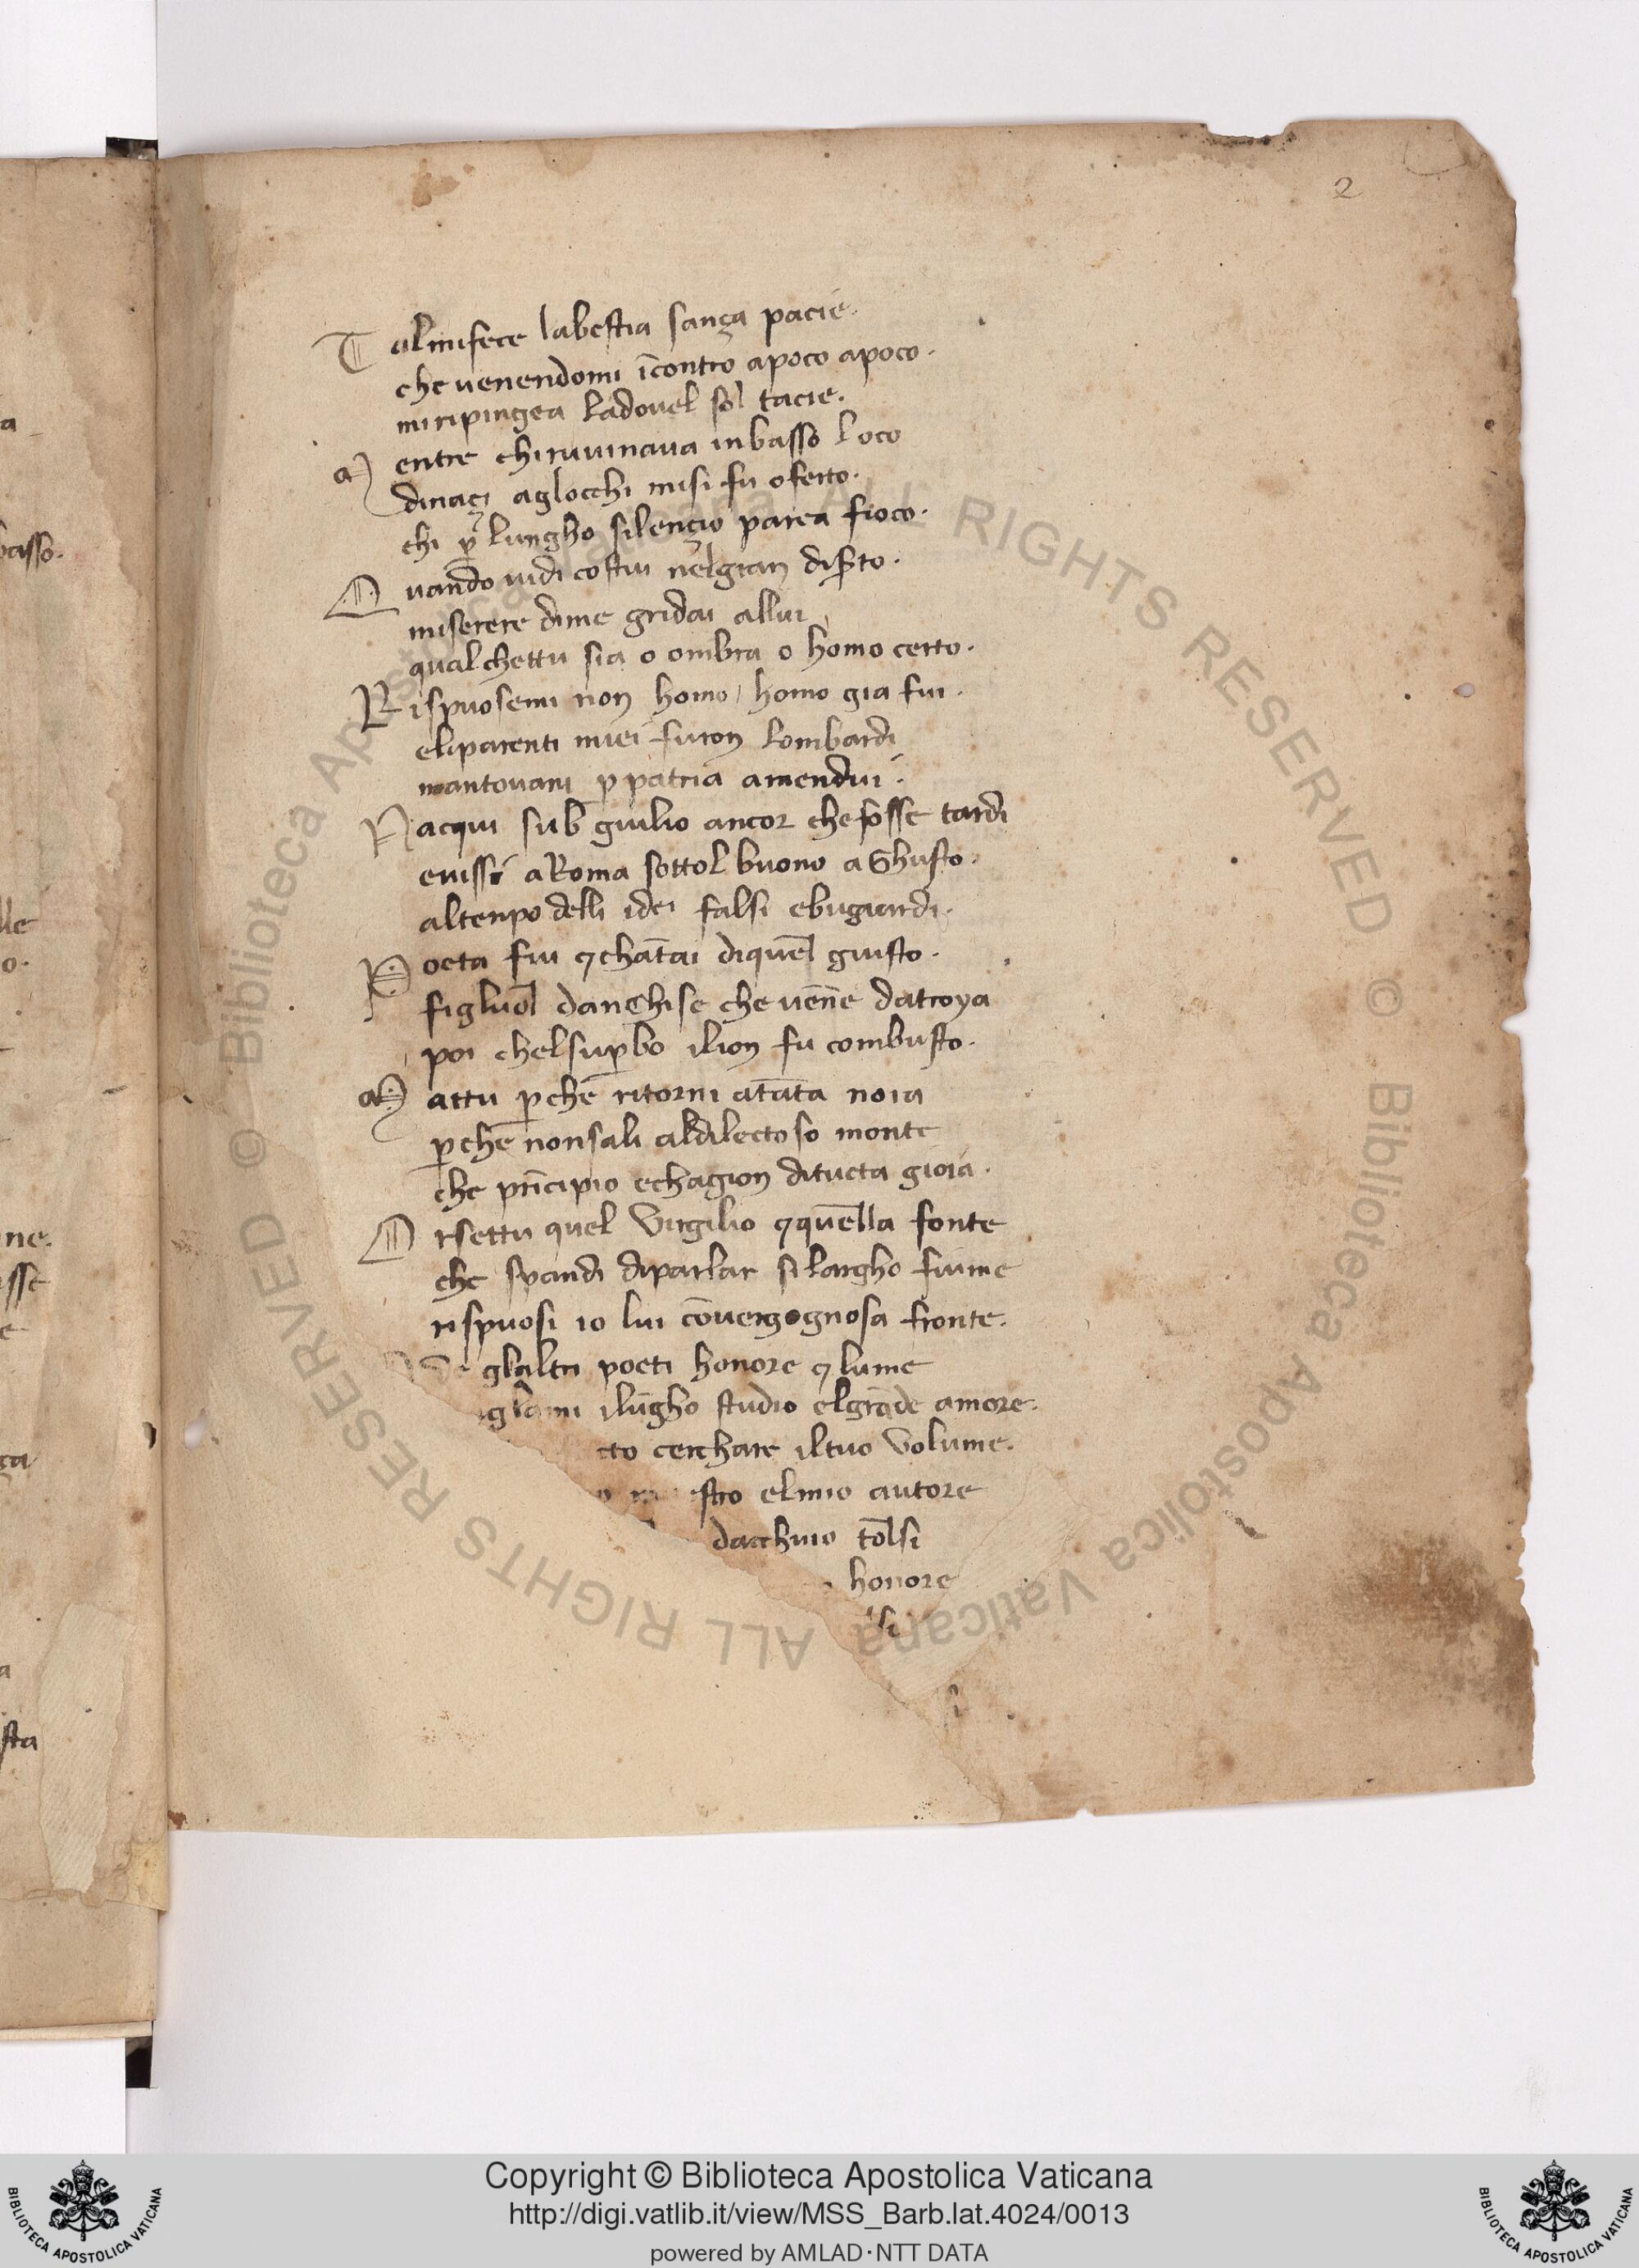 2
Talmifece labestia sança pacie·
che venendomi īcontro apoco apoco·
miripingea ladovel sol tacie·
Mentre chiruvinava inbasso loco
dinaçi aglocchi misi fu oferto·
chi ꝑ lungho silençio parea fioco·
Quando vidi costui nelgran disꝑto·
miserere dime gridai allui
qualchettu sia o ombra o homo certo·
Rispuosemi non homo / homo gia fui·
eliparenti miei furon lombardi
mantovani ꝑ patria amendui·
Nacqui sub giulio ancor chefosse tardi
evissi aRoma sottol buono aGhusto·
altenpo delli idei falsi ebugiardi·
Poeta fui ⁊ chātai diquel giusto·
figluol danchise che vēne datroya
poi chelsuꝑbo ilion fu combusto·
Mattu ꝑche ritorni atāta noia
ꝑche nonsali aldilectoso monte
che prīcipio echagion ditucta gioia·
Orsettu quel Virgilio ⁊ quella fonte
che spandi diparlar silargho fiume
rispuosi io lui cōvergognosa fronte·
glaltri poeti honore ⁊ lume
ilūgho studio elgrāde amore·
cto cerchare iltuo volume·
stro elmio autore
dacchuio tolsi
honore
lsi
asso·
lle
o·
ne·
sse
sta
Copyright © Biblioteca Apostolica Vaticana
http://digi.vatlib.it/view/MSS_Barb.lat.4024/0013
powered by AMLAD·NTT DATA
BIBLIOTECA APOSTOLICA VATICANA
BIBLIOTECA APOSTOLICA VATICANA
© Biblioteca Apostolica Vaticana ALL RIGHTS RESERVED © Biblioteca Apostolica Vaticana ALL RIGHTS RESERVED